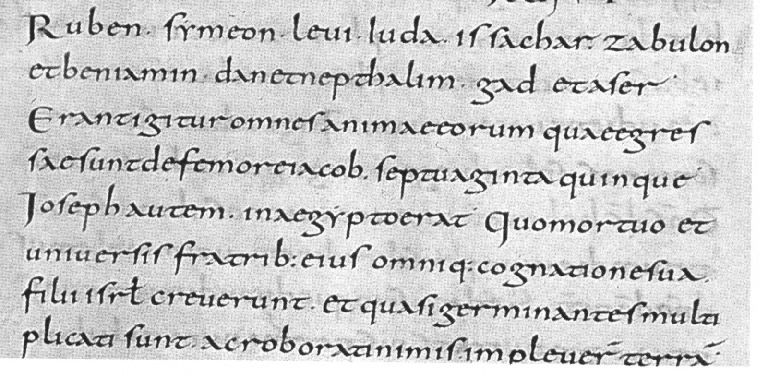 Ruben. sẏmeon. levi. luda. issachar. zabulon
etbeniamin. danetnepthalim. gad etaser
Erantigituromnesanimaeeorum quaeegres
saesuntdefemoreiacob. septuaginta quinque
Joseph autem. inaegẏptoerat Quomortuo et
universisfratrib: eius omniq: cognationesua.
filii isrł creverunt. et quasigerminantesmulti
plicati sunt. acroboratinimis. impleuer̄ terrā